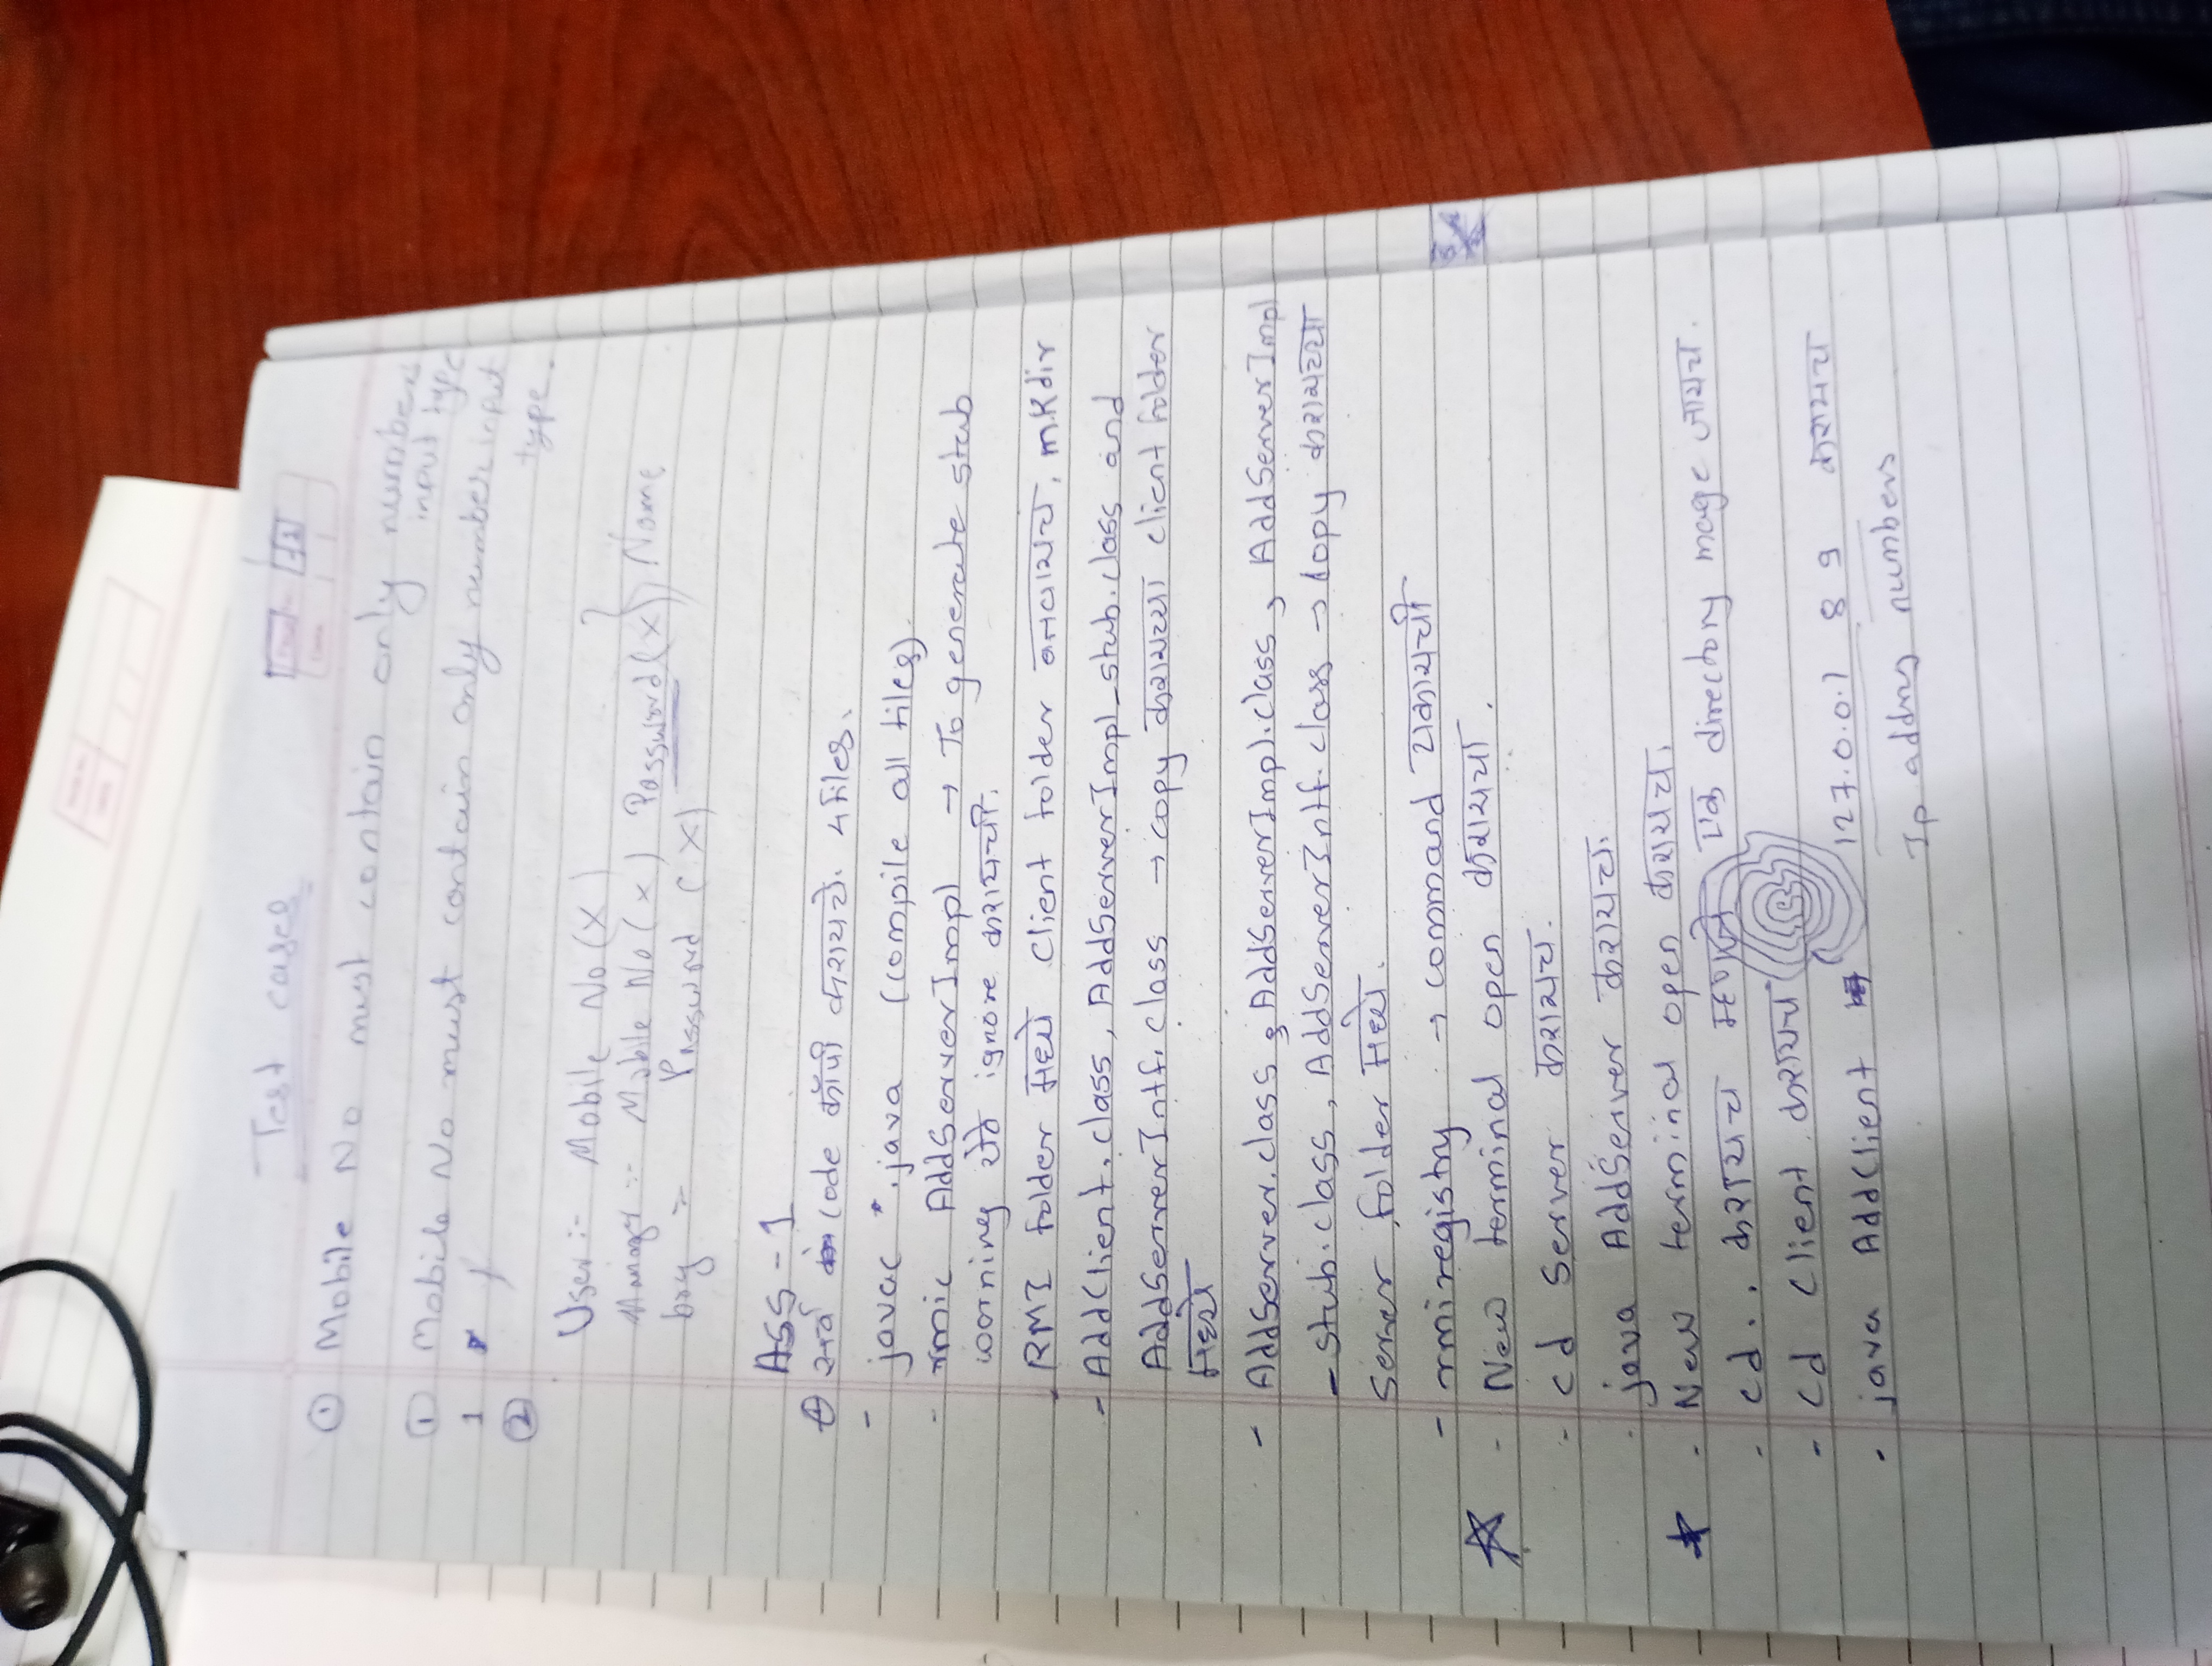 Test cases
① Mobile No must contain only numbers
input type
① Mobile No must contain only number input
1
type.
②
User :- Mobile No (X)
Manager :- Mobile No (x) Password (x) } Name
boy :- Password (X)
Ass - 1
सर्व code कॉपी करायचे. 4 files.
- javac *.java (compile all files)
- rmic AddServerImpl → To generate stub
worning येते ignore करायची.
- RMI folder मध्ये Client folder बनवायच, mkdir
- AddClient.class, AddServerImpl_stub.class and
AddServerIntf.class → copy करायच्या client folder
मध्ये
- AddServer.class, AddServerImpl.class, AddServerImpl
_stub.class, AddServerIntf.class → copy करायच्या
Server folder मध्ये.
- rmiregistry → command टाकायची
☆ - New terminal open करायचा.
- cd Server करायच.
- java AddServer करायच.
★ - New terminal open करायच.
- cd.. करायच म्हणजे एक directory mage जायच.
- cd Client करायच
- java AddClient 127.0.0.1 8 9 करायच
Ip addrs numbers